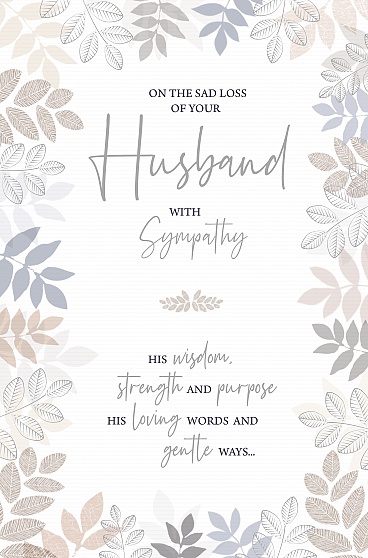 ON THE SAD LOSS
OF YOUR
Husband
WITH
Sympathy
HIS wisdom,
strength AND purpose
HIS loving WORDS AND
gentle WAYS...